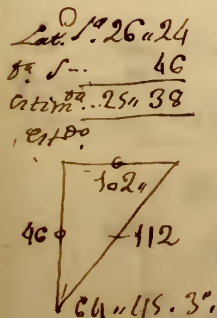 Lat. S.ª 26,,24
d.ª S--- 46
Estim.ᵈᵃ..25,,38
102,,
46 112
64,,45.3º